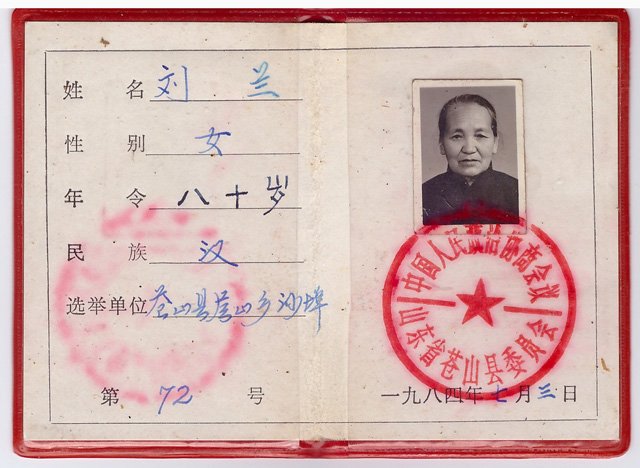 姓 名 刘 兰
性 别 女
年 令 八十岁
民 族 汉
选举单位 苍山县兰山乡沙埠
第 72 号
中国人民政治协商会议
山东省苍山县委员会
一九八四年七月三日